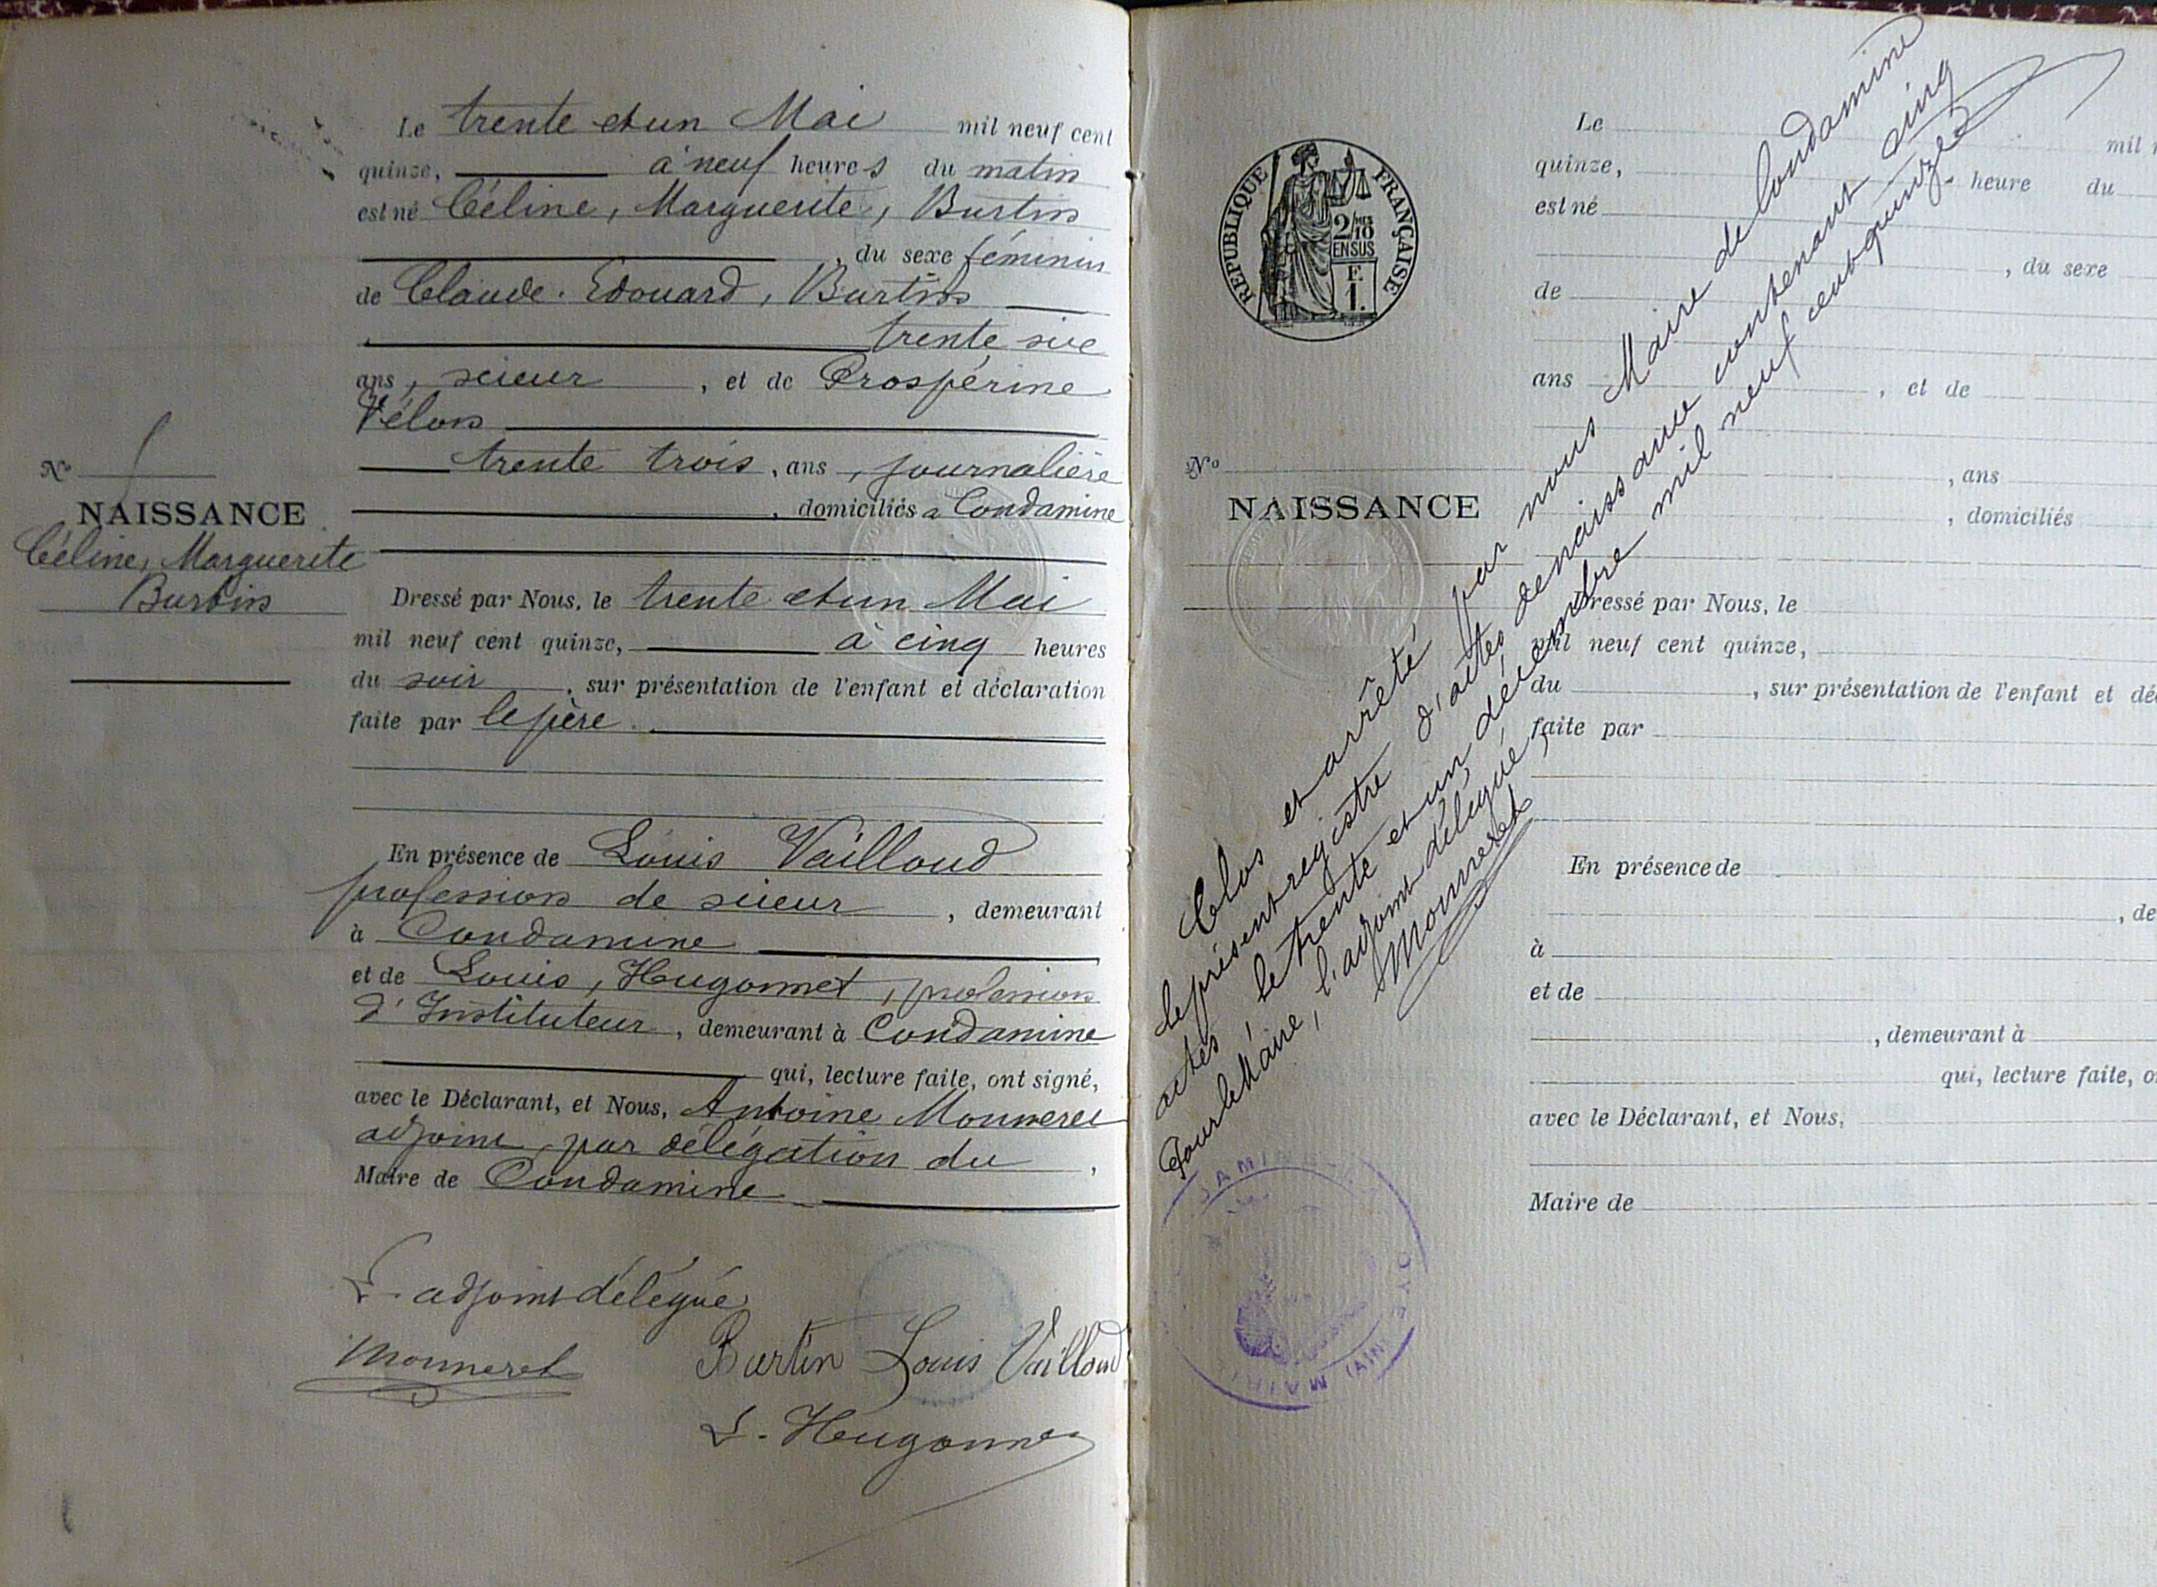 Le trente et un Mai mil neuf cent
quinze, à neuf heures du matin
est né Céline, Marguerite, Burtin
, du sexe féminin
de Claude. Edouard, Burtin
trente six
ans, scieur , et de Prospérine
Vélon
trente trois, ans, journalière
, domiciliés à Condamine
N°
NAISSANCE
Céline, Marguerite
Burtin
Dressé par Nous, le trente et un Mai
mil neuf cent quinze, à cinq heures
du soir , sur présentation de l'enfant et déclaration
faite par le père.
En présence de Louis Vailloud
profession de scieur , demeurant
à Condamine
et de Louis, Hugonnet, profession
d'Instituteur, demeurant à Condamine
qui, lecture faite, ont signé,
avec le Déclarant, et Nous, Antoine Monneret
adjoint, par délégation du ,
Maire de Condamine
L'adjoint délégué
Monneret Burtin Louis Vailloud
L. Hugonnet
REPUBLIQUE FRANÇAISE
2/10
EN SUS
F.
1.
Le mil
quinze, heure du
est né
, du sexe
de
ans , et de
N° , ans
NAISSANCE
, domiciliés
Dressé par Nous, le
mil neuf cent quinze,
du , sur présentation de l'enfant et dé
faite par
En présence de
, de
à
et de
, demeurant à
qui, lecture faite, o
avec le Déclarant, et Nous,
Maire de
Clos et arrêté par nous Maire de Condamine
le présent registre d'actes de naissance contenant cinq
actes, le trente et un décembre mil neuf cent quinze
Pour le Maire, l'adjoint délégué,
Monneret